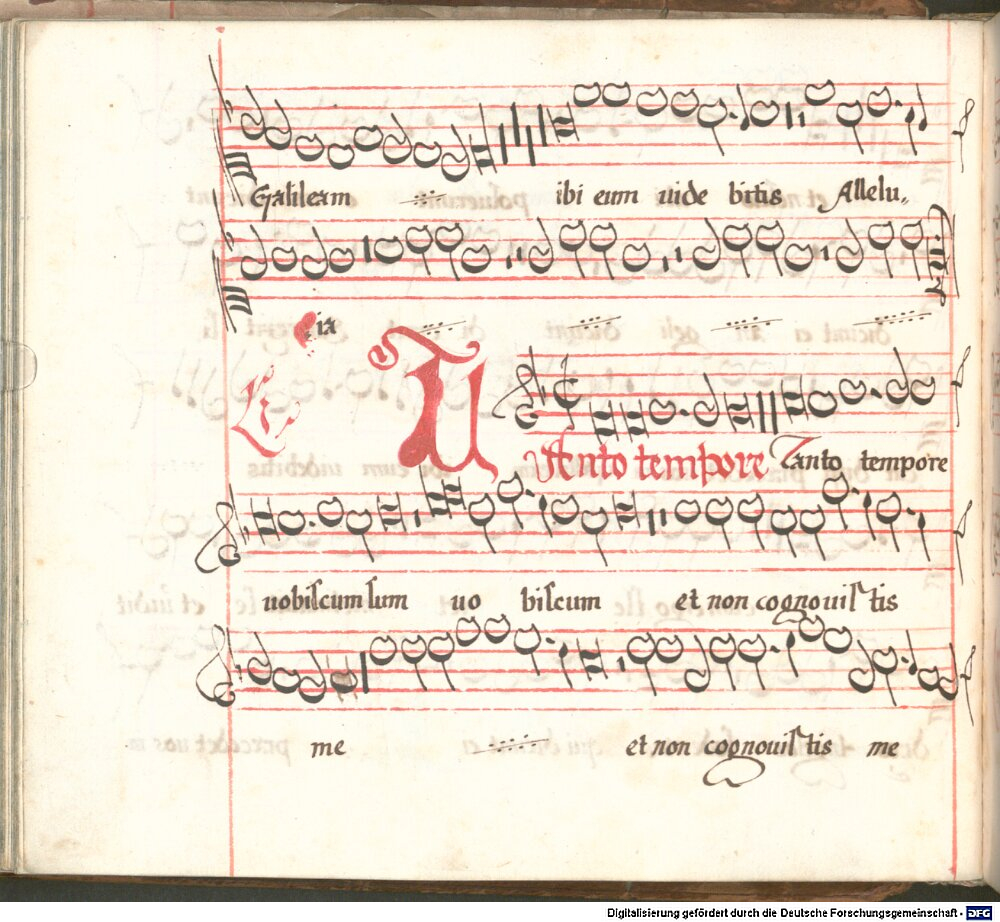 Galileam ibi eum uide bitis Allelu,,
ia
TAnto tempore Tanto tempore
uobiscum sum uo biscum et non cognouistis
me et non cognouistis me
Digitalisierung gefördert durch die Deutsche Forschungsgemeinschaft - DFG